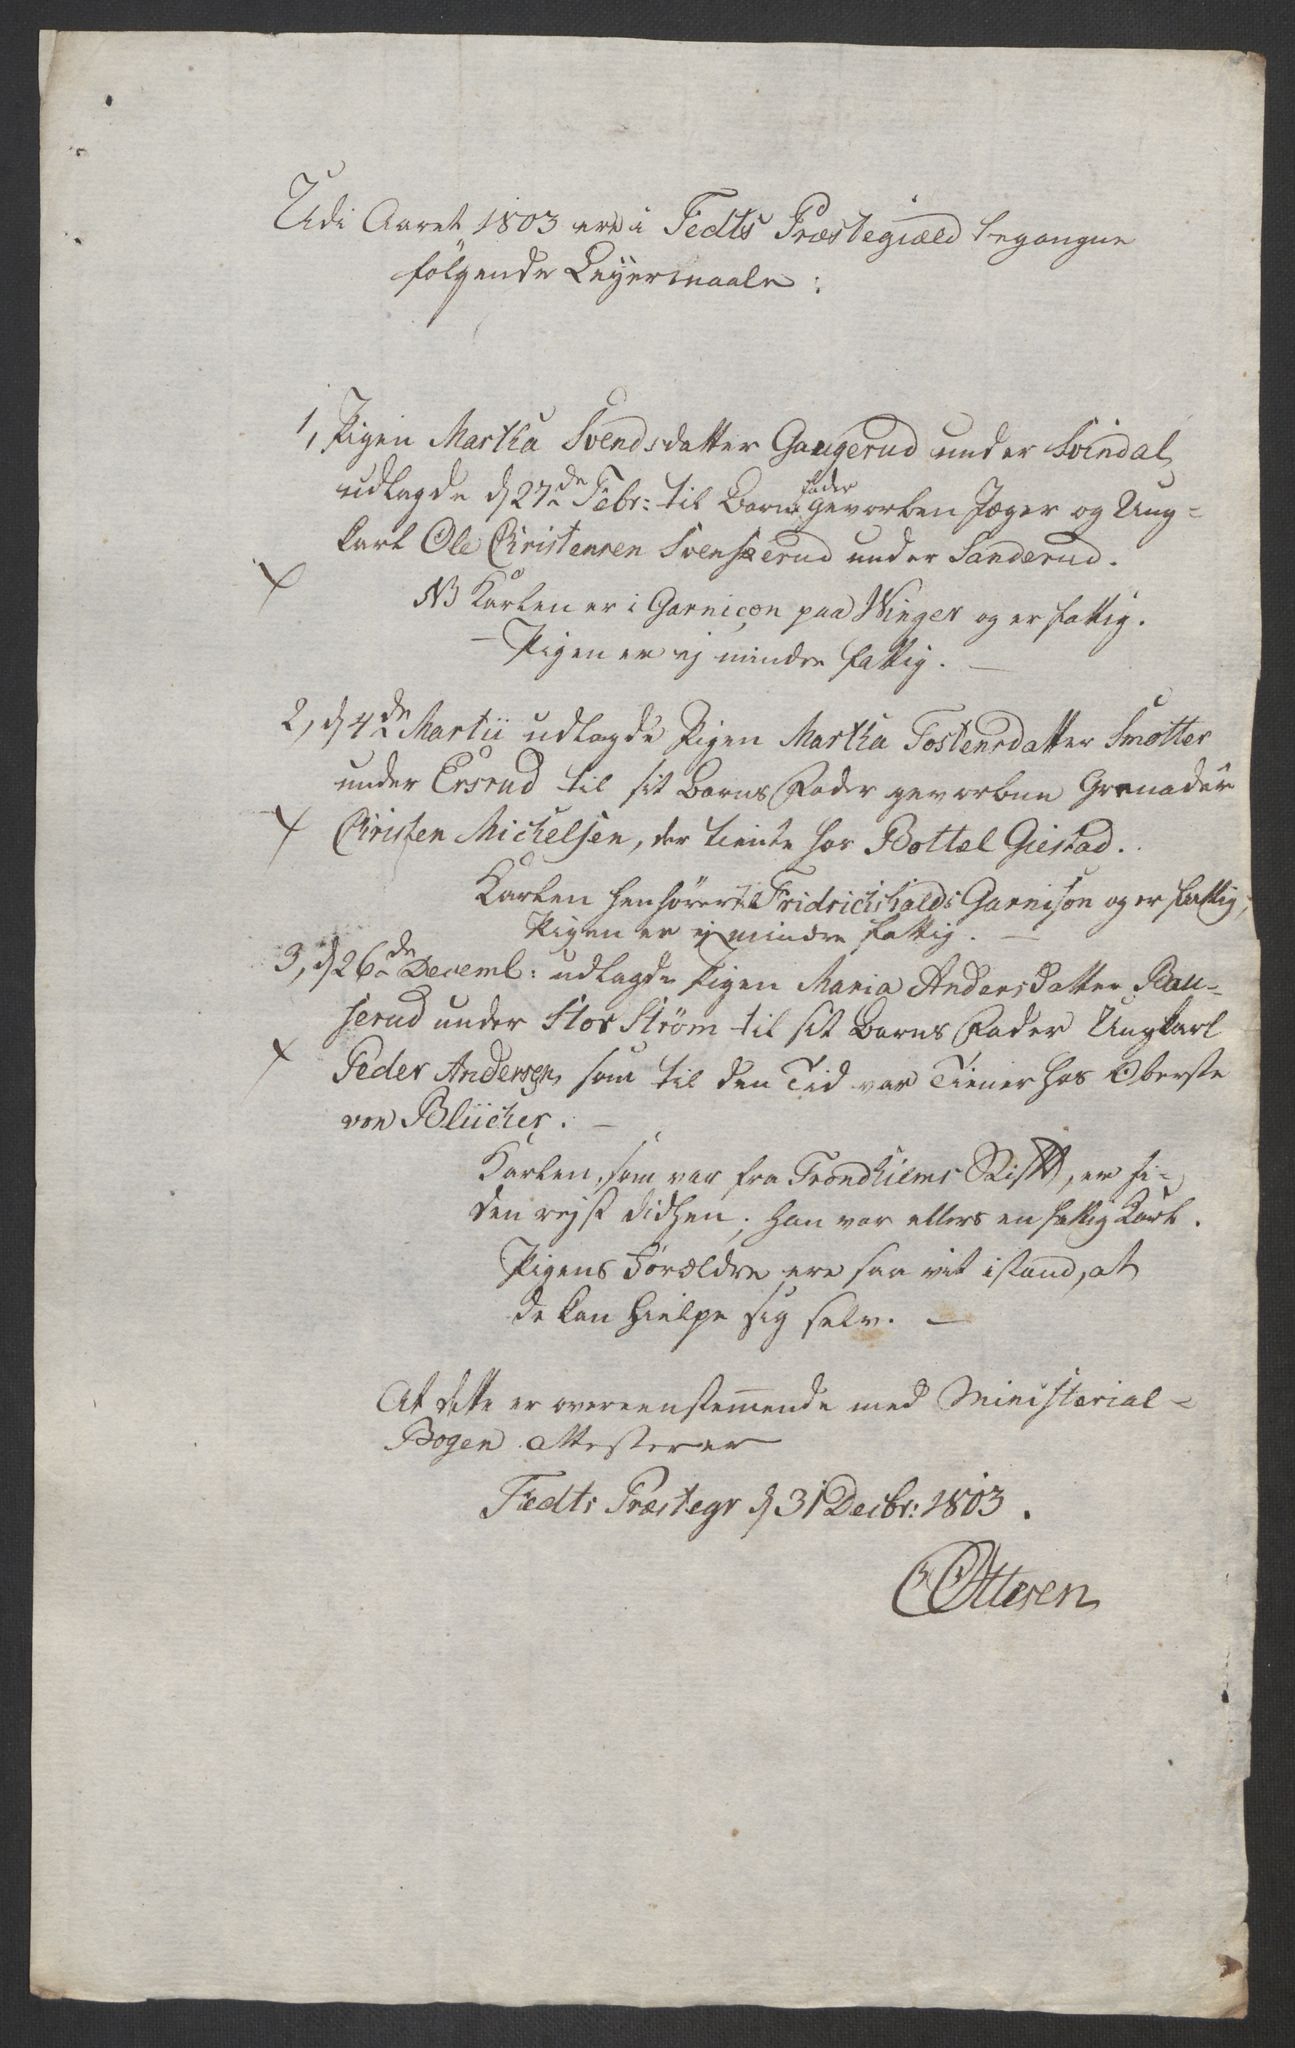 Udi Aaret 1803 ere i Fedts Præstegiæld begangne
følgende Leyermaale:
1, Pigen Martha Svendsdatter Gaugerud under Svindal
udlagde d 27de Febr: til Barns Fader gevorben Jæger og Ung=
karl Ole Christensen Svenserud under Sanderud.
NB Karlen er i Garniçon paa Winger og er fattig.
— Pigen er ej mindre fattig. —
2, d 4de Martii udlagde Pigen Martha Tostensdatter Smotter
under Ersrud til sit Barns Fader gevorben Grenadeer
Christen Michelsen, der tiente hos Bottel Giestad.
Karlen henhører til Fridrichshalds Garnison og er fattig,
Pigen er ej mindre fattig. —
3, d 26de Decembr: udlagde Pigen Maria Andersdatter Bau=
serud under Stor Strøm til sit Barns Fader Ungkarl
Peder Andersen, som til den Tid var Tiener hos Oberste
von Blücher. —
Karlen, som var fra Trondhiems Stift, er si=
den rejst didhen; han var ellers en fattig Karl.
Pigens Forældre ere saa vit istand, at
de kan hielpe sig selv. —
At dette er overeenstemmende med Ministerial=
Bogen attesterer
Fedts Præstegr d 31 Decbr: 1803.
Ottesen